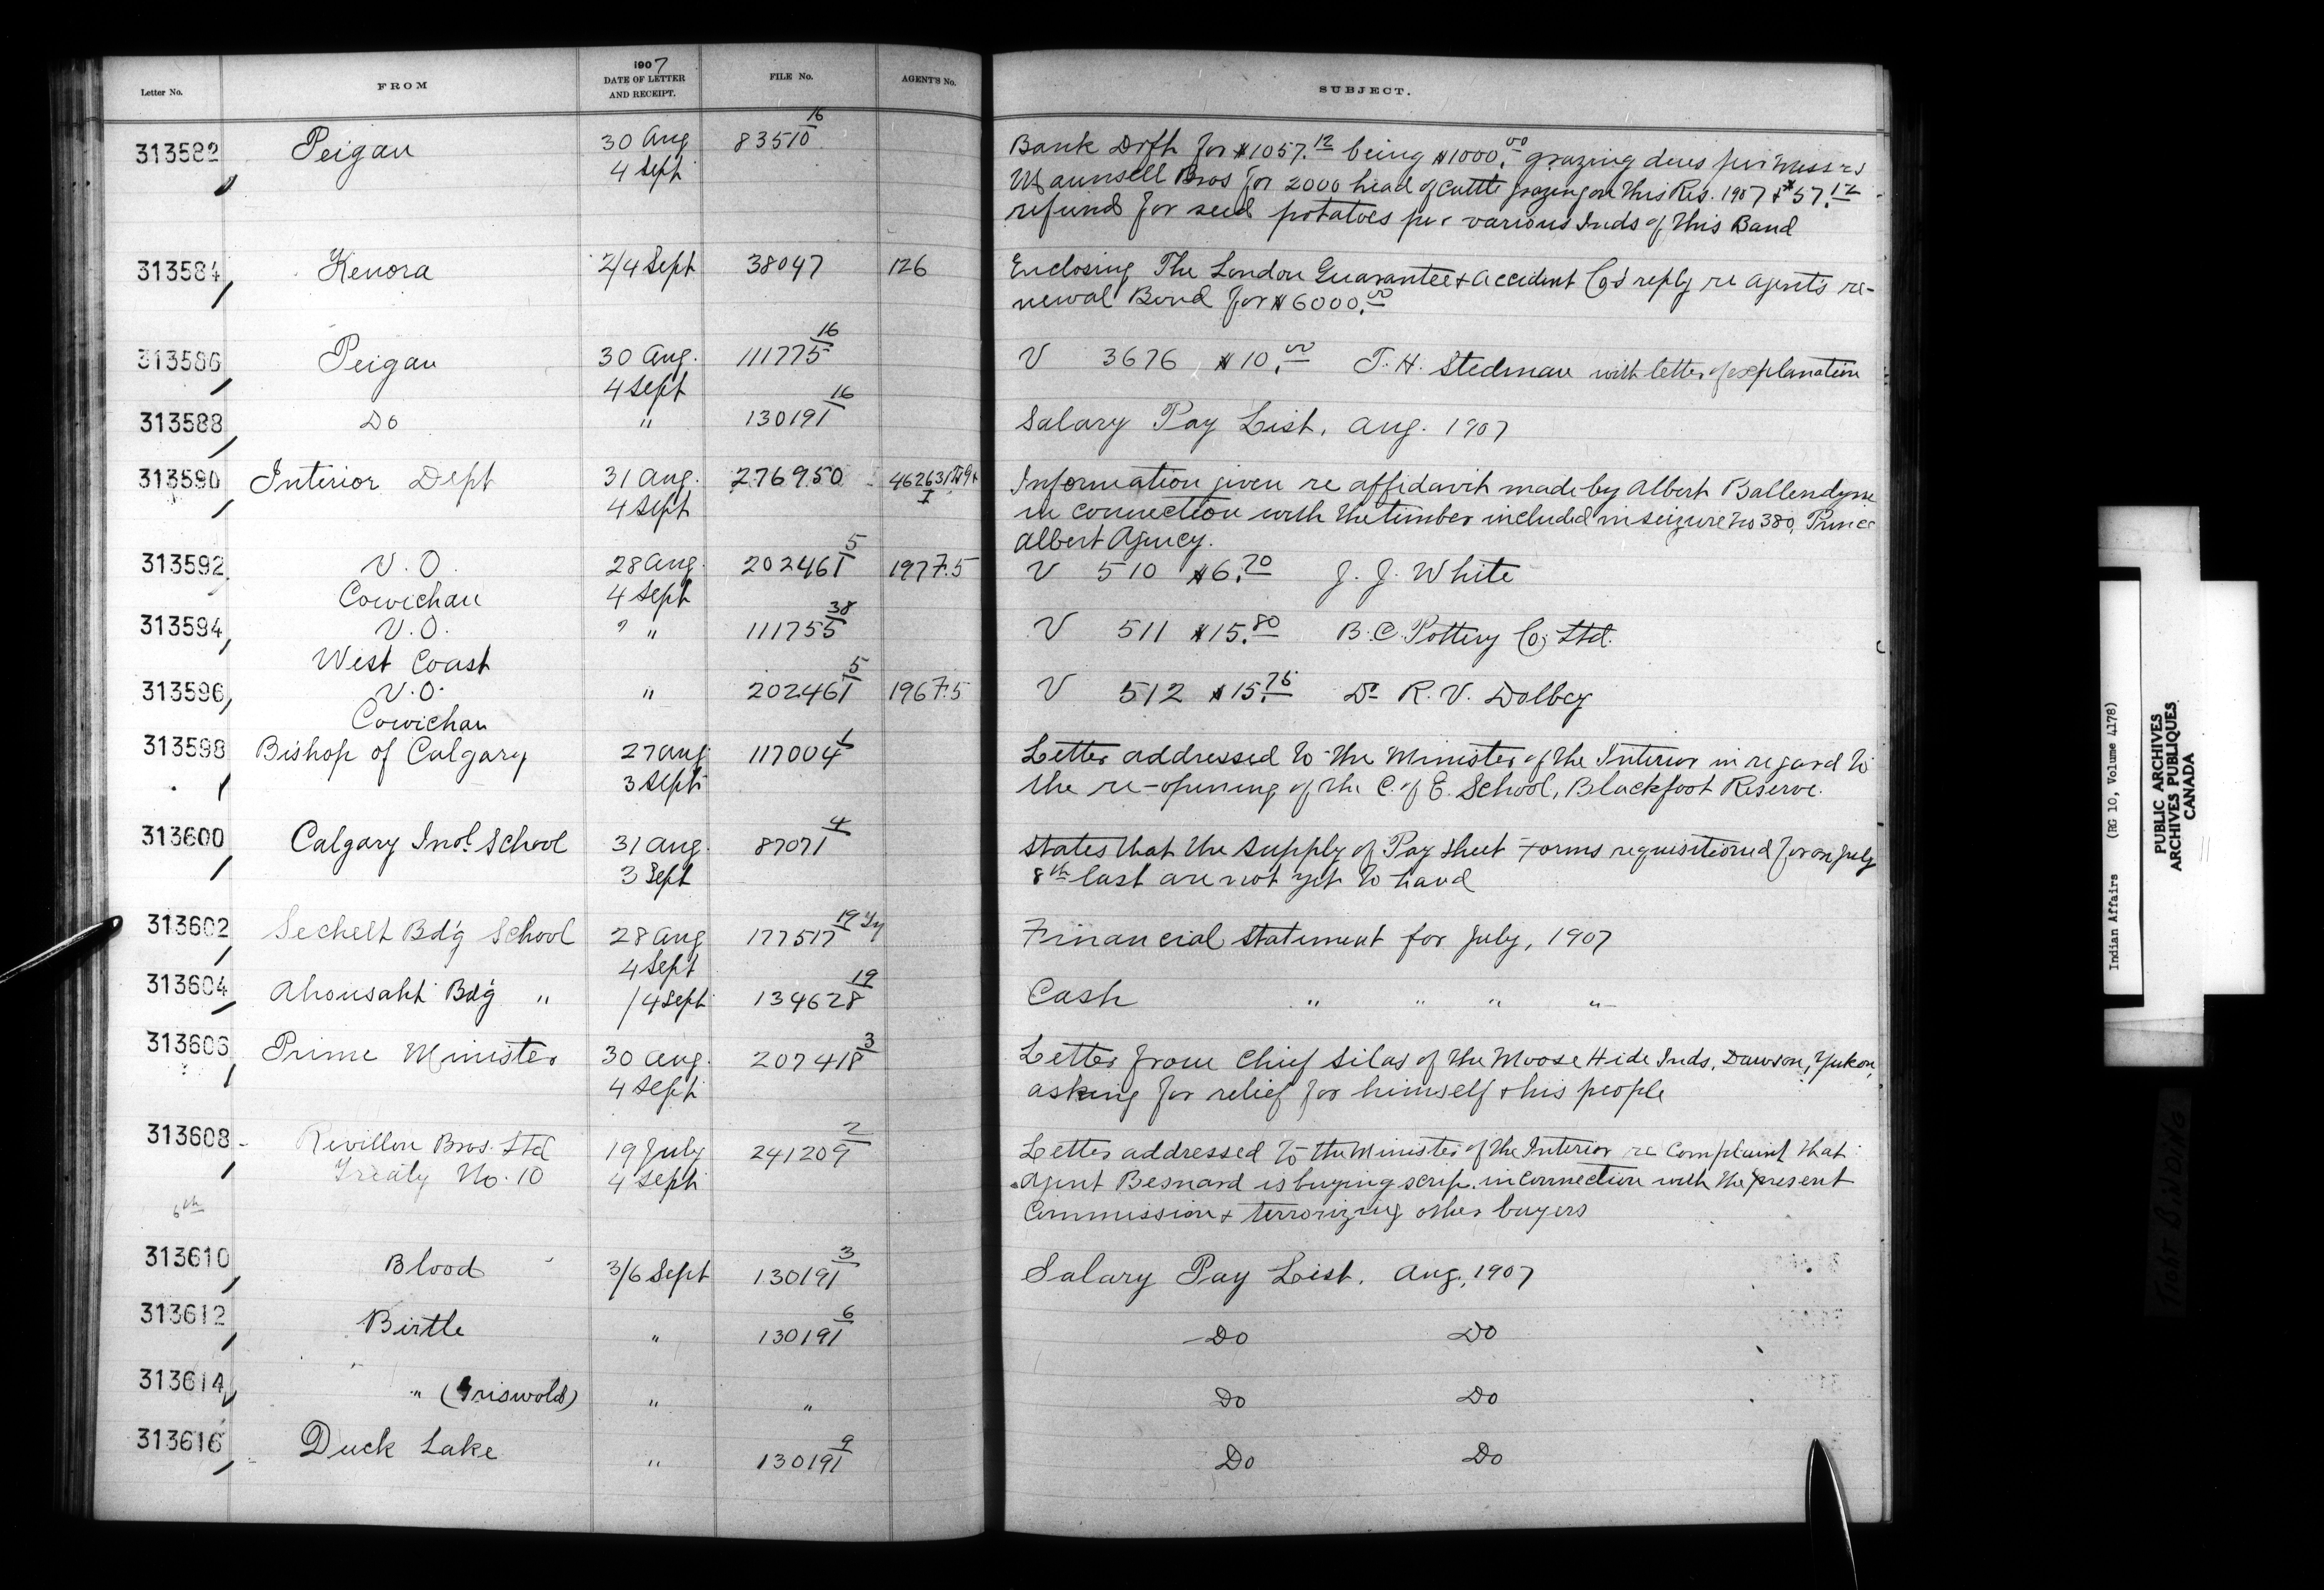 Letter No. FROM 1907 DATE OF LETTER AND RECEIPT. FILE No. AGENT'S No. SUBJECT.
313582 Peigan 30 Aug 83510 16 Bank Drft for $1057.12 being $1000.00 grazing dues per Messrs
4 Sept Maunsell Bros for 2000 head of cattle grazing on this Res. 1907 & $57.12
refund for seed potatoes per various Inds of this Band
313584 Kenora 2/4 Sept 38047 126 Enclosing The London Guarantee & Accident Co's reply re Agent's re-
newal Bond for $6000.00
313586 Peigan 30 Aug. 111775 16 V 3676 $10.00 T. H. Stedman with letter of explanation
4 Sept
313588 Do " 130191 16 Salary Pay List, Aug. 1907
313590 Interior Dept 31 Aug. 276950 Information given re affidavit made by Albert Ballendyne
4 Sept in connection with the timber included in seizure No 380, Prince
Albert Agency.
313592 V. O. 28 Aug. 202461 5 1977.5 V 510 $6.70 J. J. White
Cowichan 4 Sept
313594 V. O. " 111755 38 V 511 $15.80 B. C. Pottery Co, Ltd.
West Coast
313596 V. O. " 202461 5 1967.5 V 512 $15.75 Dr R. V. Dolbey
Cowichan
313598 Bishop of Calgary 27 Aug 117004 1 Letter addressed to the Minister of the Interior in regard to
3 Sept the re-opening of the C. of E. School, Blackfoot Reserve.
313600 Calgary Indl. School 31 Aug. 87071 4 States that the supply of Pay Sheet Forms requisitioned for on July
3 Sept 8th last are not yet to hand
313602 Sechelt Bd'g School 28 Aug 177517 19 Financial Statement for July, 1907
4 Sept
313604 Ahousaht Bd'g " /4 Sept 134628 19 Cash " " " "
313606 Prime Minister 30 Aug. 207418 3 Letter from Chief Silas of the Moose Hide Inds, Dawson, Yukon,
4 Sept asking for relief for himself & his people
313608 Revillon Bros. Ltd 19 July 241209 2 Letter addressed to the Minister of the Interior re complaint that
Treaty No. 10 4 Sept Agent Besnard is buying scrip in connection with the present
6th Commission & terrorizing other buyers
313610 Blood 3/6 Sept 130191 3 Salary Pay List. Aug, 1907
313612 Birtle " 130191 6 Do Do
313614 " (Griswold) " " Do Do
313616 Duck Lake " 130191 9 Do Do
Indian Affairs (RG 10, Volume 4178)
PUBLIC ARCHIVES
ARCHIVES PUBLIQUES
CANADA